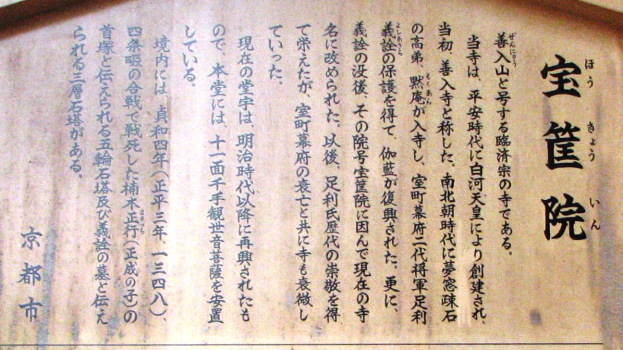 宝筐院
ほうきょういん
善入山と号する臨済宗の寺である。
ぜんにゅう
当寺は、平安時代に白河天皇により創建され、
当初、善入寺と称した。南北朝時代に夢窓疎石
の高弟、黙庵が入寺し、室町幕府二代将軍足利
もくあん
義詮の保護を得て、伽藍が復興された。更に、
よしあきら
義詮の没後、その院号宝筐院に因んで現在の寺
名に改められた。以後、足利氏歴代の崇敬を得
て栄えたが、室町幕府の衰亡と共に寺も衰微し
ていった。
現在の堂宇は、明治時代以降に再興されたも
ので、本堂には、十一面千手観世音菩薩を安置
している。
境内には、貞和四年（正平三年、一三四八）、
四条畷の合戦で戦死した楠木正行（正成の子）の
まさつら
首塚と伝えられる五輪石塔及び義詮の墓と伝え
られる三層石塔がある。
京都市